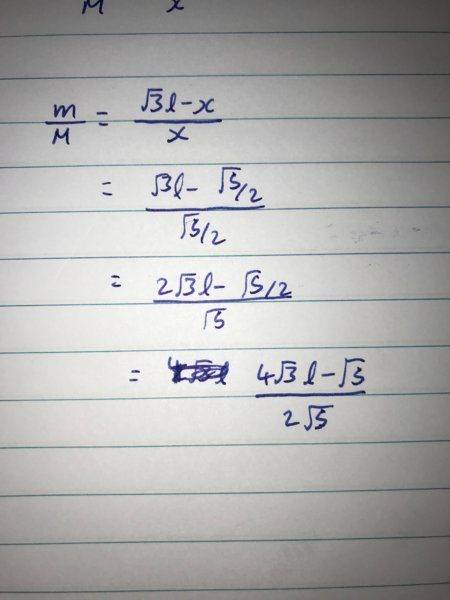 M x
m/M = (√3l-x)/x
= (√3l - √5/2)/(√5/2)
= (2√3l - √5/2)/√5
= (4√3l-√5)/(2√5)